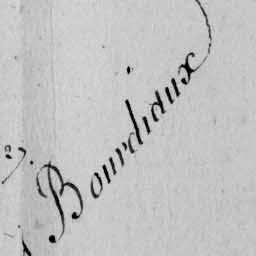 27.
Bourdiaux